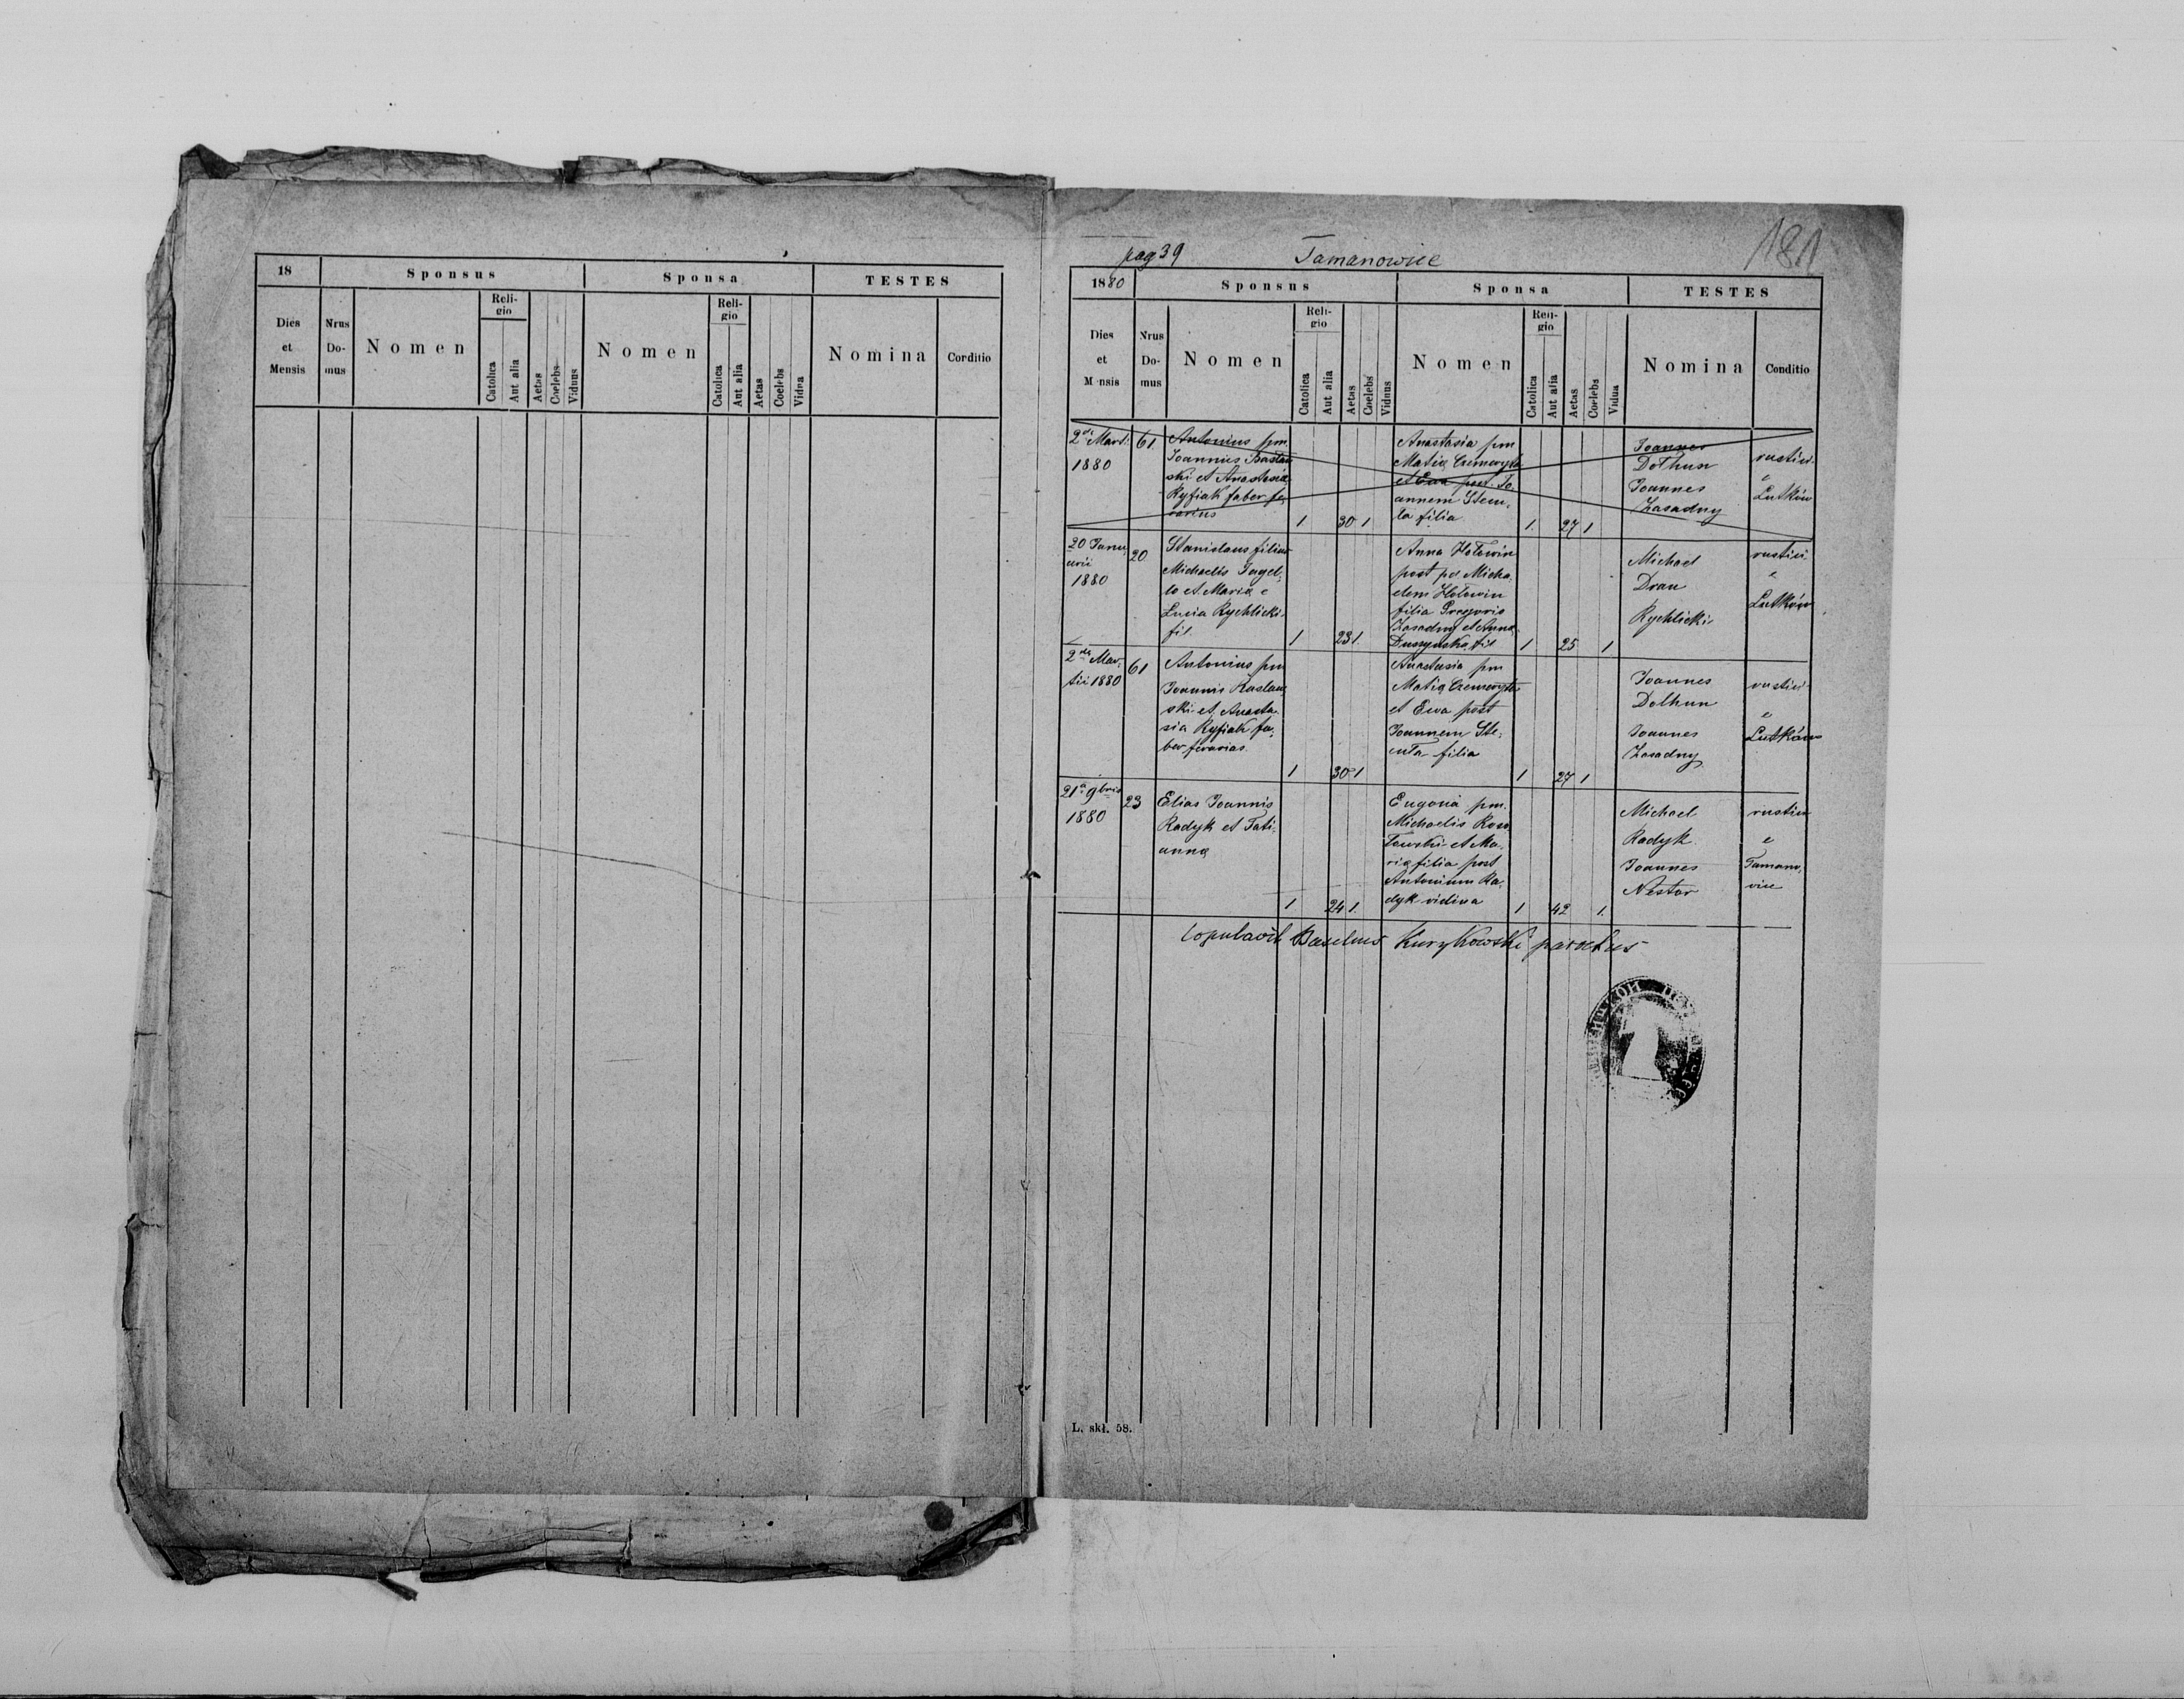 18
Sponsus
Sponsa
TESTES
Dies et Mensis
Nrus Do- mus
Nomen
Reli- gio
Catolica
Aut alia
Aetas
Coelebs
Viduus
Nomen
Reli- gio
Catolica
Aut alia
Aetas
Coelebs
Vidua
Nomina
Corditio
pag 39
Tamanowice
181
1880
Sponsus
Sponsa
TESTES
Dies et M nsis
Nrus Do- mus
Nomen
Reli- gio
Catolica
Aut alia
Aetas
Coelebs
Viduus
Nomen
Reli- gio
Catolica
Aut alia
Aetas
Coelebs
Vidua
Nomina
Conditio
2da Marti
1880
61
Antonius pm
Joannis
ski et Anastasia
Ryfiak faber fe,
rarius
1 30 1
Anastasia pm
Matia Czemeryta
et Ewa post. Jo,
annem Stem,
ta filia
1 27 1
Joannes
Dothun
Joannes
Zasadny
rustici
e
Lutków
20 Janu,
arii
1880
20
Stanislaus filius
Michaelis Jagel,
lo et Maria e
Lucia Rychlicki
fil.
1 23 1
Anna Hotowin
post pd. Micha
elem Hotowin
filia Gregoris
Zasadny et Anna
Duszynska fil
1 25 1
Michael
Dran
Rychlicki
rustici
e
Lutków
2da Mar,
tii 1880
61
Antonius pm
Joannis
ski et Anasta
sia Ryfiak fa,
ber ferarias
1 30 1
Anastasia pm
Matia Czemeryta
et Ewa post
Joannem Ste,
mta filia
1 27 1
Joannes
Dolhun
Joannes
Zasadny
rustici
e
Lutków
21a 9bris
1880
23
Elias Joannis
Radyk et Tati,
anna
1 24 1
Eugenia pm.
Michaelis
et Ma,
ria filia post
Antonium Ra,
dyk vidua
1 42 1
Michael
Radyk
Joannes
Nestor
rustici
e
Tamano,
wice
Copulavit Basilius Kurykowski parochus
L. skł. 58.